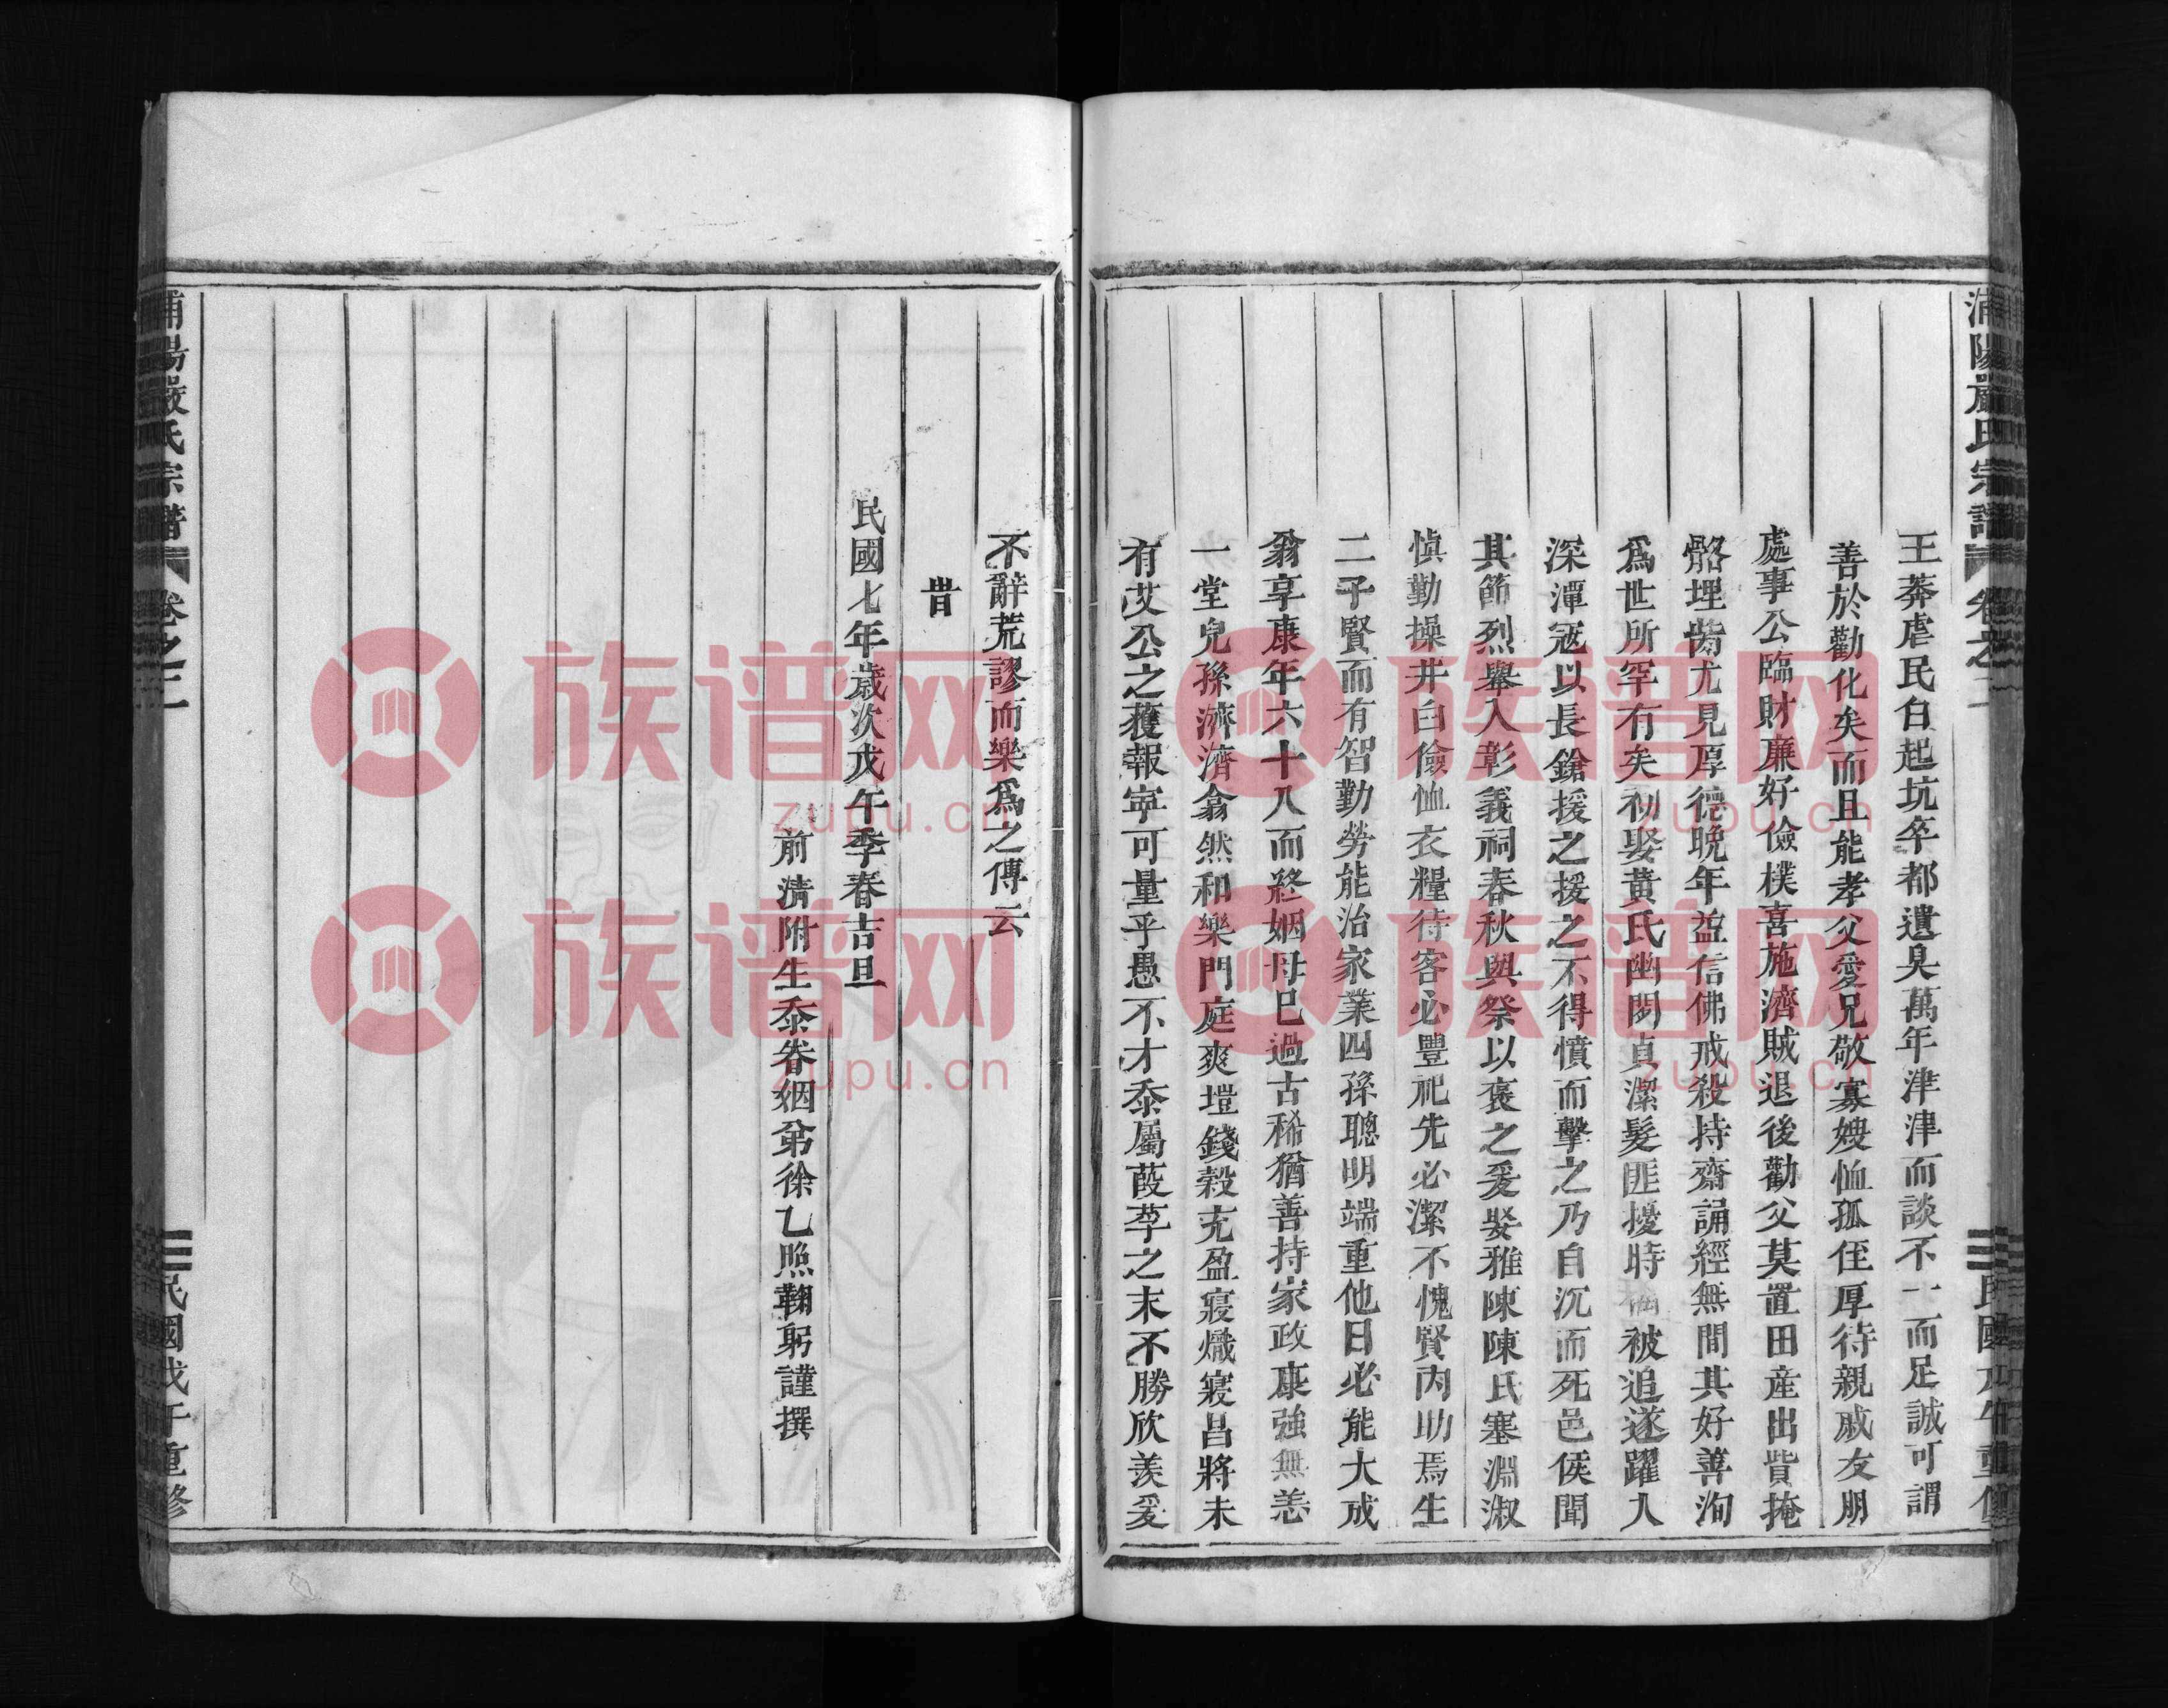 浦陽嚴氏宗譜 卷之二 民國戊午重修
王莽虐民白起坑卒都遺臭萬年津津而談不一而足誠可謂
善於勸化矣而且能孝父愛兄敬寡嫂恤孤侄厚待親戚友朋
處事公臨財廉好儉樸喜施濟賊退後勸父莫置田産出貲掩
骼埋胔尤見厚德晚年益信佛戒殺持齋誦經無間其好善洵
爲世所罕有矣初娶黄氏幽閒貞潔髮匪擾時被追遂躍入
深潭寇以長鎗援之援之不得憤而擊之乃自沉而死邑侯聞
其節烈舉入彰義祠春秋與祭以褒之爰娶雅陳陳氏塞淵淑
慎勤操井臼儉恤衣糧待客必豐祀先必潔不愧賢内助焉生
二子賢而有智勤勞能治家業四孫聰明端重他日必能大成
翁享康年六十八而終姻母已過古稀猶善持家政康強無恙
一堂兒孫濟濟翕然和樂門庭爽塏錢穀充盈寖熾寖昌將未
有艾公之獲報寕可量乎愚不才忝屬葭莩之末不勝欣羨爰
不辭荒謬而樂爲之傳云
旹
民國七年歲次戊午季春吉旦
前清附生忝眷姻弟徐乙照鞠躬謹撰
浦陽嚴氏宗譜 卷之二 民國戊午重修
族谱网
zupu.cn
族谱网
zupu.cn
族谱网
zupu.cn
族谱网
zupu.cn